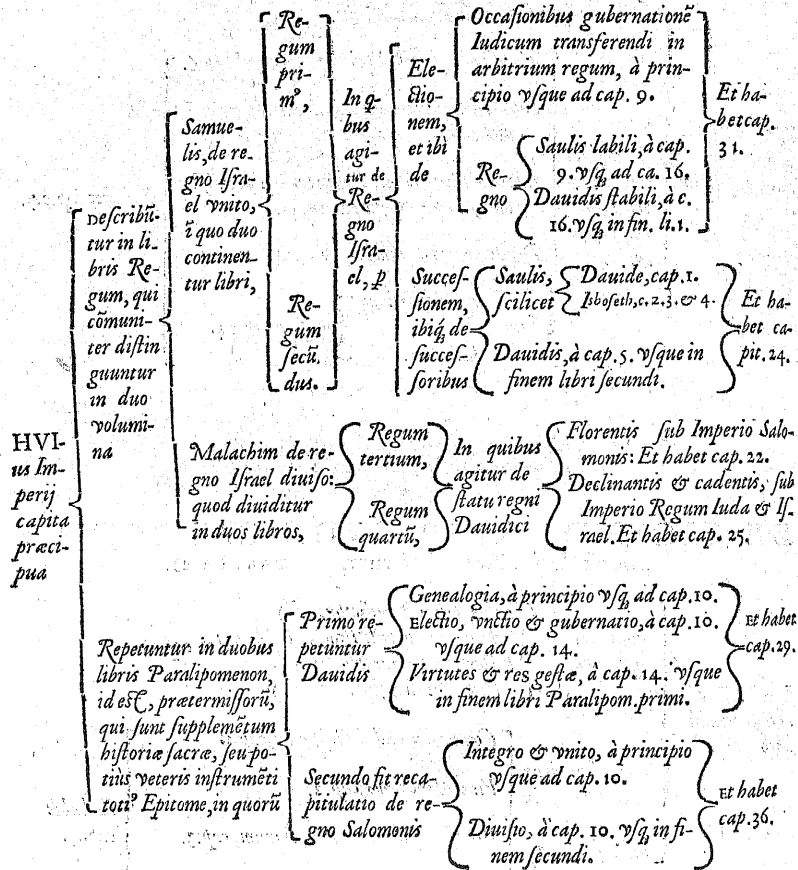 HVI-
us Im-
perij
capita
præci-
pua
Deſcribũ-
tur in li-
bris Re-
gum, qui
cõmuni-
ter diſtin
guuntur
in duo
volumi-
na
Samue-
lis, de re-
gno Iſra-
el vnito,
ĩ quo duo
continen-
tur libri,
Re-
gum
pri-
mꝰ,
Regum
ſecũ-
dus.
In q̃-
bus
agi-
tur de
Re-
gno
Iſra-
el, p
Ele-
ctio-
nem,
et ibi
de
Occaſionibus gubernationẽ
Iudicum transferendi in
arbitrium regum, à prin-
cipio vſque ad cap. 9.
Re-
gno
Saulis labili, à cap.
9. vſq; ad ca. 16.
Dauidis ſtabili, à c.
16. vſq; in fin. li. 1.
Et ha-
bet cap.
31.
Succeſ-
ſionem,
ibiq́; de
succeſ-
ſoribus
Saulis,
ſcilicet
Dauide, cap. 1.
Isboſeth, c. 2. 3. & 4.
Dauidis, à cap. 5. vſque in
finem libri ſecundi.
Et ha-
bet ca-
pit. 24.
Malachim de re-
gno Iſrael diuiſo:
quod diuiditur
in duos libros,
Regum
tertium,
Regum
quartũ,
In quibus
agitur de
ſtatu regni
Dauidici
Florentis ſub Imperio Salo-
monis: Et habet cap. 22.
Declinantis & cadentis, ſub
Imperio Regum Iuda & Iſ-
rael. Et habet cap. 25.
Repetuntur in duobus
libris Paralipomenon,
id eſt, prætermiſſorũ,
qui ſunt ſupplemẽtum
hiſtoriæ ſacræ, ſeu po-
tiùs veteris inſtrumẽti
totiꝰ Epitome, in quorũ
Primo re-
petuntur
Dauidis
Genealogia, à principio vſq; ad cap. 10.
Electio, vnctio & gubernatio, à cap. 10.
vſque ad cap. 14.
Virtutes & res geſtæ, à cap. 14. vſque
in finem libri Paralipom. primi.
Et habet
cap. 29.
Secundo fit reca-
pitulatio de re-
gno Salomonis
Integro & vnito, à principio
vſque ad cap. 10.
Diuiſio, à cap. 10. vſq; in fi-
nem ſecundi.
Et habet
cap. 36.